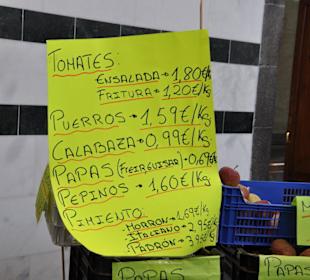 TOMATES:
ENSALADA → 1,80€/Kg
FRITURA → 1,20€/Kg
PUERROS → 1,59€/Kg
CALABAZA → 0,99€/Kg
PAPAS (FREIR GUISAR) → 0,69€/Kg
PEPINOS → 1,60€/Kg
PIMIENTO:
MORRÓN → 1,69€/Kg
ITALIANO → 2,95€/Kg
PADRÓN → 3,95€/Kg
PAPAS
PAPAS